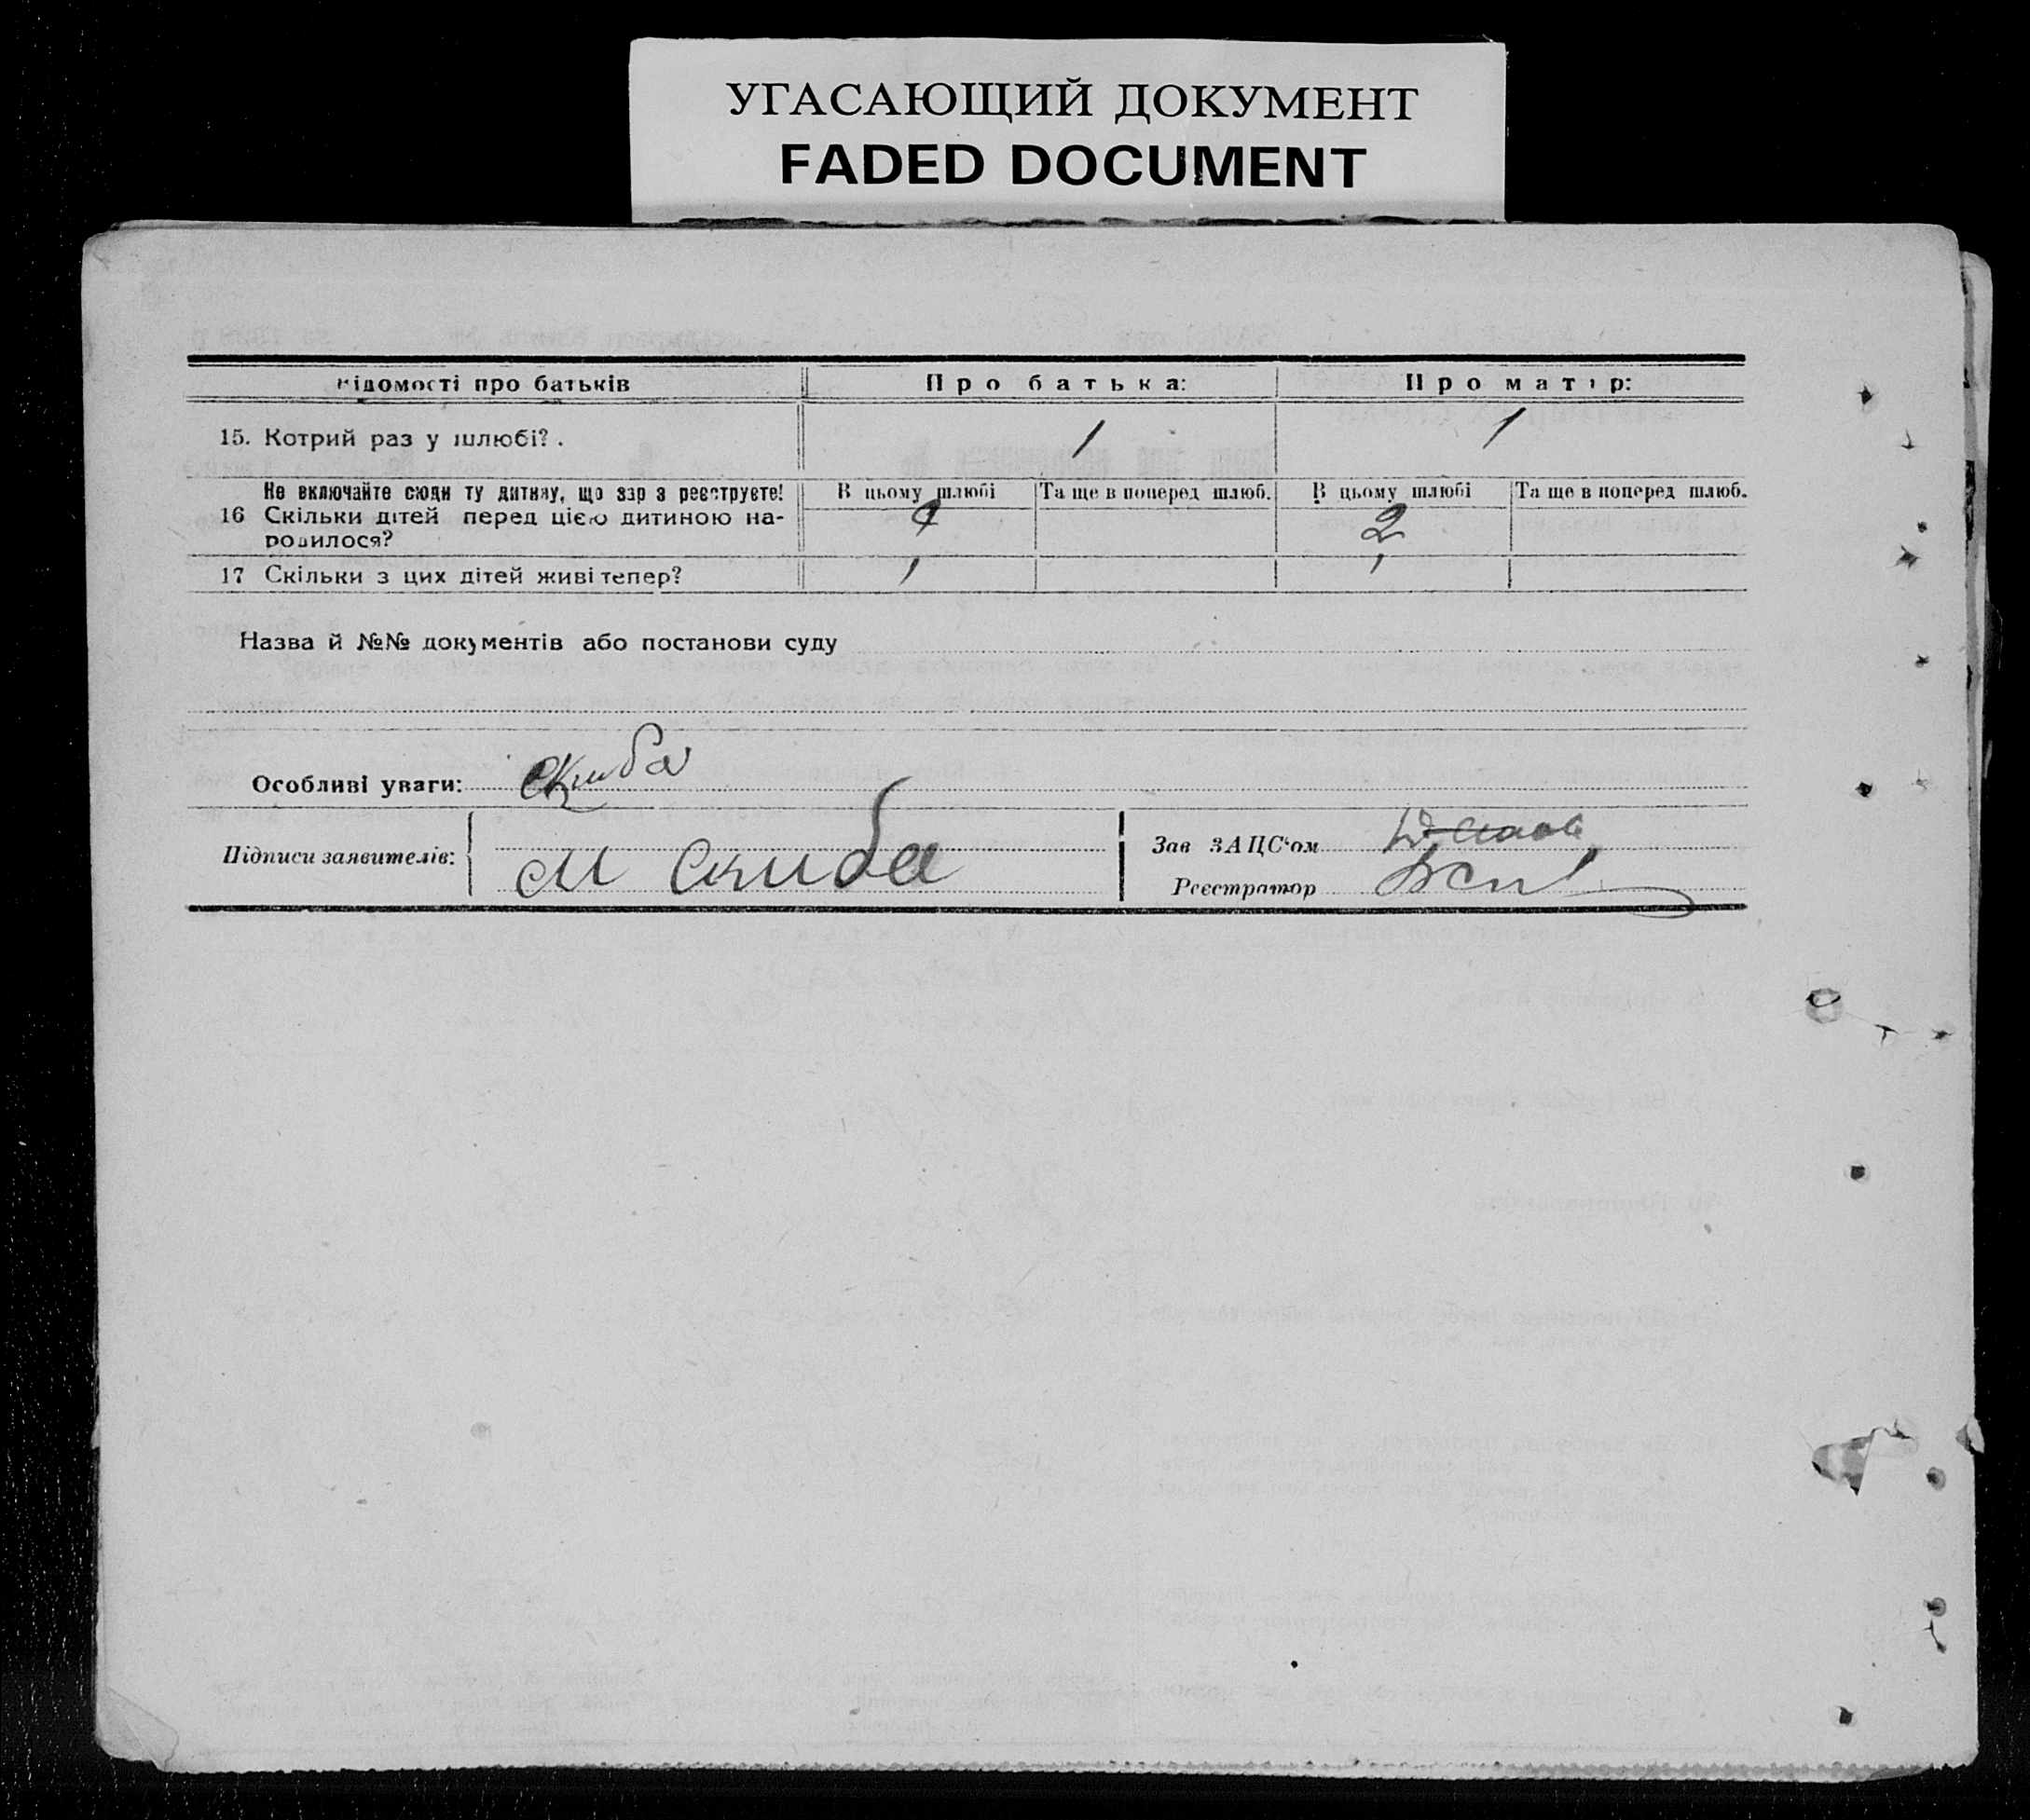 УГАСАЮЩИЙ ДОКУМЕНТ
FADED DOCUMENT
відомості про батьків Про батька: Про матір:
15. Котрий раз у шлюбі? . 1 1
Не включайте сюди ту дитину, що зар з реєструєте! В цьому шлюбі Та ще в поперед шлюб. В цьому шлюбі Та ще в поперед шлюб.
16 Скільки дітей перед цією дитиною на- 2
родилося?
17 Скільки з цих дітей живі тепер? 1 1
Назва й №№ документів або постанови суду
Особливі уваги: Скиба
Підписи заявителів: М Скиба
Зав ЗАЦС‘ом
Реєстратор